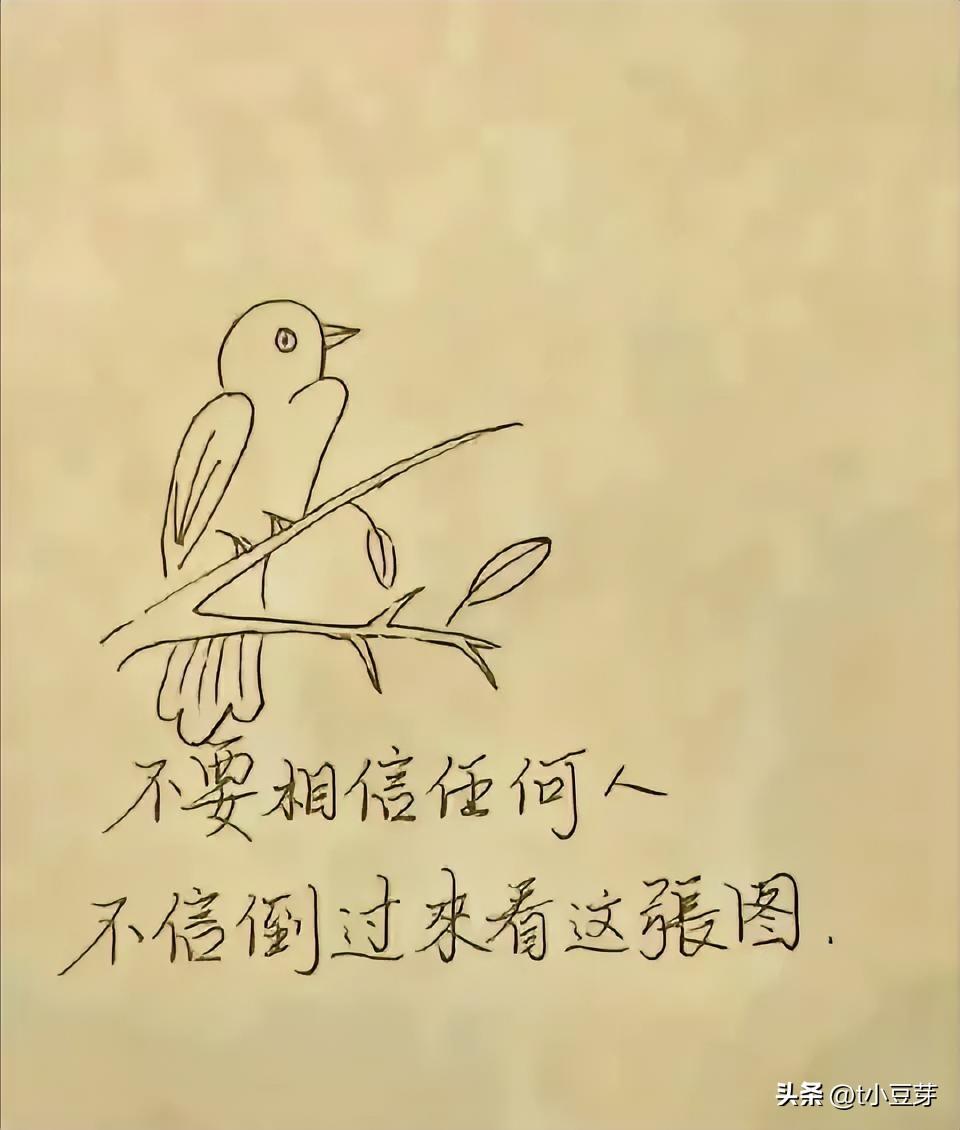 不要相信任何人
不信倒过來看这張图.
头条 @t小豆芽